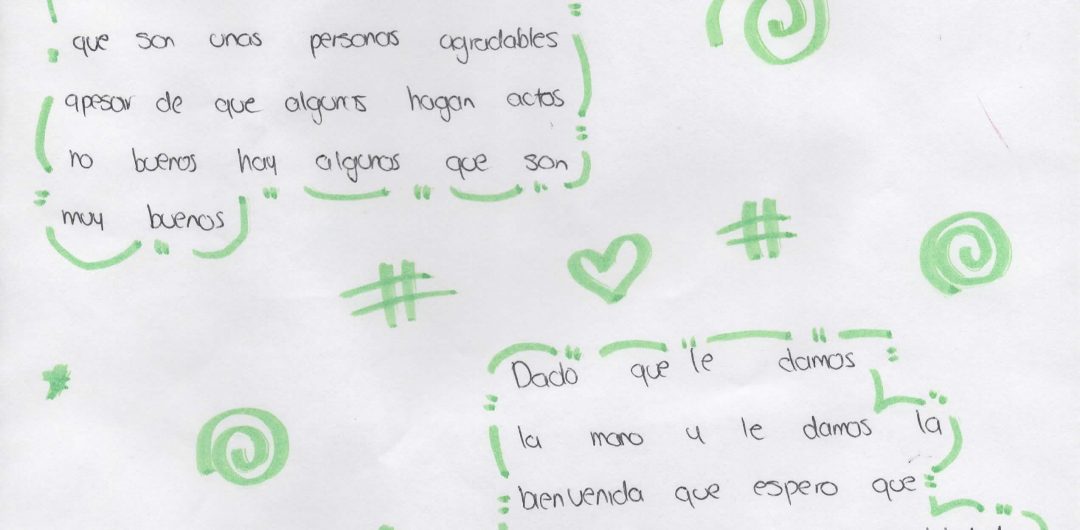 que son unas personas agradables
apesar de que algunas hagan actos
no buenos hay algunos que son
muy buenos
Dado que le damos
la mano y le damos la
bienvenida que espero que